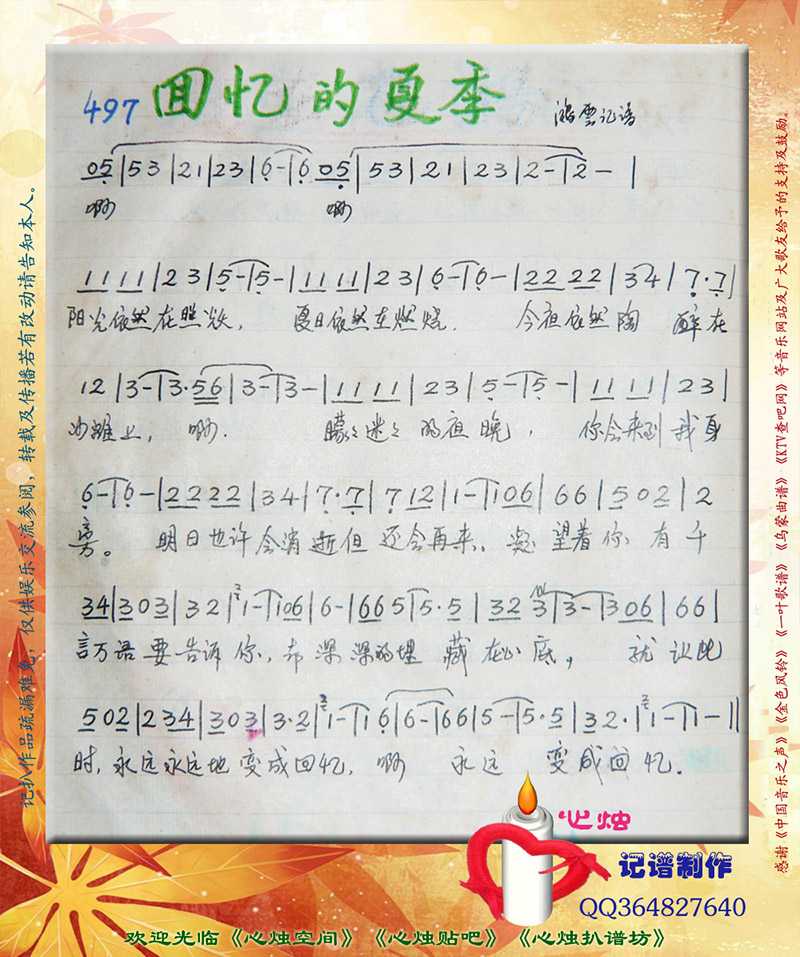 497 回忆的夏季 瀚雲记谱
05|53|21|23|6-|6 05|53|21|23|2-|2-|
啊 啊
1111|23|5-|5-|1111|23|6-|6-|2222|34|7·7|
阳光依然在照耀， 夏日依然在燃烧． 今夜依然陶 醉在
12|3-|3·56|3-|3-|1111|23|5-|5-|1111|23|
沙滩上， 啊． 朦々迷々的夜晚， 你会来到我身
6-|6-|2222|34|7·7|712|1-|106|66|502|2
旁。 明日也许会消逝但还会再来、凝望着你 有千
34|303|32|1-|106|6-|665|5·5|32 3|3-|306|66|
言万语要告诉你，却深深的埋藏在心底， 就让此
502|234|303|3·2|1-|1 6|6-|66|5-|5·5|32·|1-|1-||
时，永远永远地变成回忆，啊 永远 变成回忆．
记扒作品疏漏难免，仅供娱乐交流参阅，转载及传播若有改动请告知本人。
感谢《中国音乐之声》《金色风铃》《一叶歌谱》《乌蒙曲谱》《KTV查吧网》等音乐网站及广大歌友给予的支持及鼓励。
心烛
记谱制作
QQ364827640
欢迎光临《心烛空间》《心烛贴吧》《心烛扒谱坊》